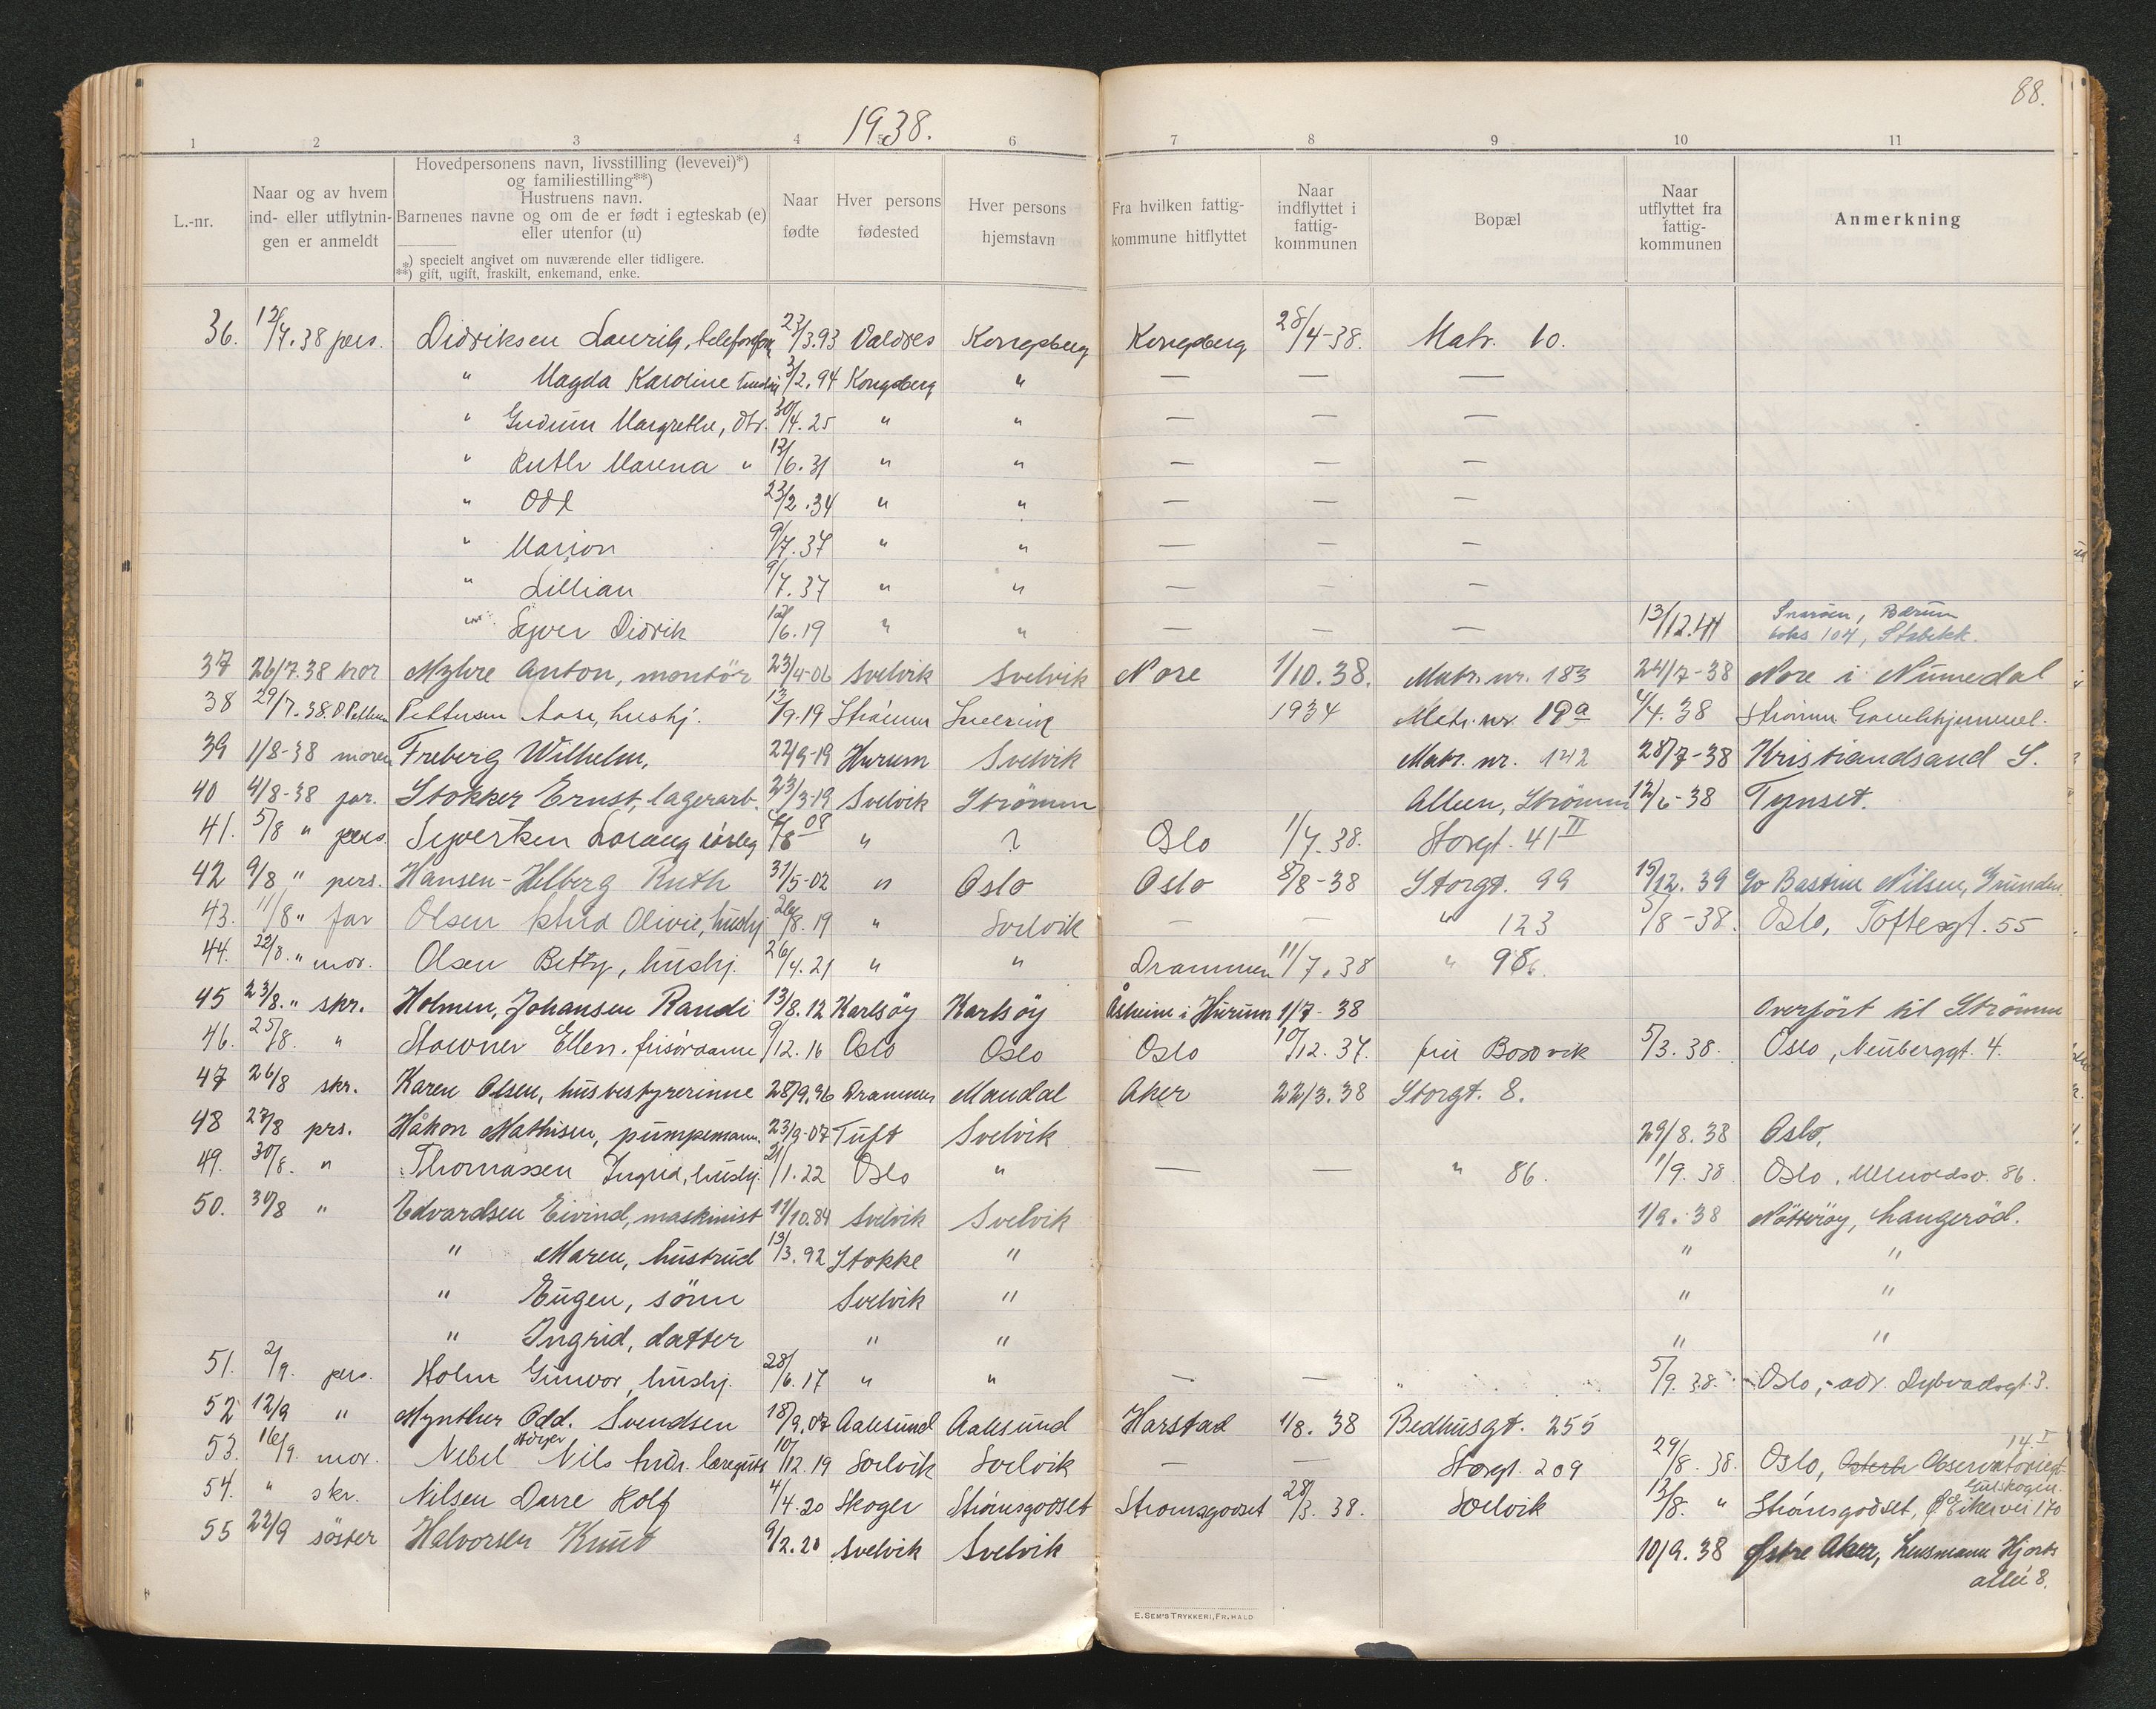 88.
1938.
1 2 3 4 5 6 7 8 9 10 11
L.-nr.
Naar og av hvem
ind- eller utflytnin-
gen er anmeldt
Hovedpersonens navn, livsstilling (levevei)*)
og familiestilling**)
Hustruens navn.
Barnenes navne og om de er født i egteskab (e)
eller utenfor (u)
*) specielt angivet om nuværende eller tidligere.
**) gift, ugift, fraskilt, enkemand, enke.
Naar
fødte
Hver persons
fødested
Hver persons
hjemstavn
Fra hvilken fattig-
kommune hitflyttet
Naar
indflyttet i
fattig-
kommunen
Bopæl
Naar
utflyttet fra
fattig-
kommunen
Anmerkning
36. 12/7.38 pers. Didriksen Lauritz, 23/3.93 Valdres Kongsberg Kongsberg 28/4-38. Matr. 10.
" Magda Karoline hustru 3/2.94 Kongsberg " — — —
" Gudrun Margrethe, dtr. 30/4.25 " " — — —
" Ruth Marena " 12/6.31 " " — — —
" Odd 23/2.34 " " — — —
" Marion 9/7.37 " " — — —
" Lillian 9/7.37 " " — — —
" Syver Didrik 12/6.19 " " — — — 13/12.41 Snarøen, Bærum
boks 104, Stabekk.
37 26/7.38 bror Myhre Anton, montör 23/4-06 Svelvik Svelvik Nore 1/10.38. Matr. nr. 183 24/7-38 Nore i Numedal
38 29/7.38. Pettersen Aase, hushj. 12/9.19 Strømm 1934 Matr. nr. 19a 4/4.38 Strømm
39 1/8-38 moren Freberg Wilhelm, 22/9-19 Hurum Svelvik Matr. nr. 142 28/7-38 Kristiandsand S.
40 4/8-38 far. Stokker Ernst, lagerarb. 23/3-19 Svelvik Strömm Alleen, Strömm 12/6-38 Tynset.
41. 5/8 " pers. Syvertsen ? Oslo 1/7.38. Storgt. 41 II
42 9/8 " pers. Hansen-Helberg Ruth 31/5-02 " Oslo Oslo 8/8-38 Storgt. 99 15/12.39 c/o Bastine Nilsen, Grunden.
43. 11/8 " far Olsen Olivie, hushj 26/8.19 " Svelvik — — " 123 5/8-38. Oslo, Toftesgt. 55
44. 22/8. " mor. Olsen Betty, hushj. 26/4.21 " " Drammen 11/7.38 " 98b.
45 23/8. " skr. Holmen, Johansen Randi 13/8.12 Karlsöy Karlsöy Åsheim i Hurum 1/7-38 Overfört til Strömm
46. 25/8. " Stawner Ellen. frisördame 9/12.16 Oslo Oslo Oslo 10/12.37. fru Bosvik 5/3.38. Oslo, Neuberggt. 4.
47 26/8 skr. Karen Olsen, husbestyrerinne 28/9.96 Drammen Mandal Aker 22/3.38 Storgt. 8.
48 27/8 prs. Håkon Mathisen, pumpemann. 23/9-07 Tuft Svelvik 29/8.38 Oslo,
49. 30/8. " Thomassen Ingrid, hushj. 21/1.22 Oslo " — — " 86. 1/9.38 Oslo, 86.
50. 30/8 " Edvardsen Eivind, maskinist 11/10.84 Svelvik Svelvik 1/9.38 Nötteröy, Haugeröd.
" Maren, hustrud 13/3.92 Stokke " " "
" Eugen, sönn Svelvik " " "
" Ingrid, datter " " " "
51. 2/9. pers. Holm Gunvor, hushj. 28/6.17 " " — — " 5/9.38. Oslo, adr. Dybvadsgt. 3.
52 12/9 " Mynther Odd. Svendsen 18/9.07 Aalesund Aalesund Harstad 1/8.38 Bedhusgt. 255
53. 16/9. mor. Nebel Nils Andr. læregutt 10/12.19 Svelvik Svelvik — Storgt. 209 29/8.38. Oslo, Observatoriegt. 14 I
54. " skr. Nilsen Darre Rolf 4/4.20 Skoger Strømsgodset Strømsgodset 28/3.38. Svelvik 13/8. " Strømsgodset, Ø. Eikervei 170 Gulskogen.
55 22/9 söster Halvorsen Knut 9/2.20 Svelvik Svelvik 10/9.38 Østre Aker, Lensmann Hjorts
allé 8.
E. SEM'S TRYKKERI, FR. HALD